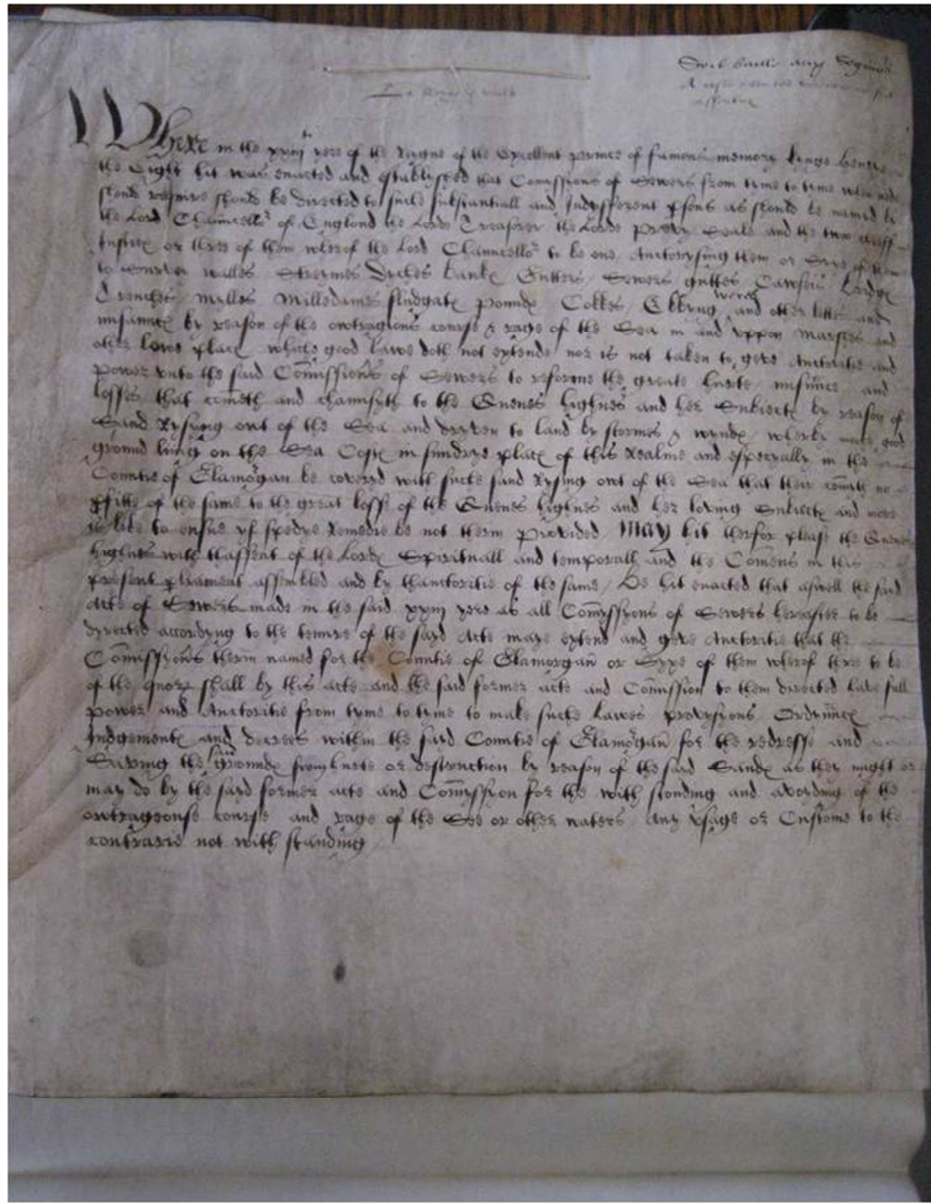 Soit baille aux Seigneurs
La Royne le veult
Where in the xxiij yere of the Reigne of the Excellent prince of famous memory kinge Henrie
the Eight hit was enacted and establyshed that Comissions of Sewers from tyme to tyme when nede
shoulde require should be directed to suche substanciall and Indyfferent psons as should be named by
the Lord Chauncello^r of England the Lorde Treasorer the Lorde privey Seale and the two chiff
Justices or three of them wherof the Lord Chauncello^r to be one, Auctorysing them or Syxe of them
to Survey walles Stremes Dyches banke Gutters Sewers guttes Cawseis Bridge
Trenches Milles Milledames fludgate pounde Lockes Ebbing weres and other letts and
nusaunce by reason of the owtragious course & rage of the Sea in and vppon Marshes and
other lowe place, whiche good lawe doth not extende nor is not taken to geve Auctoritie and
power vnto the said Comissions of Sewers to reforme the greate hurte nusaunce and
losses that cometh and chaunsyth to the Quenes highnes and her Subiecte by reason of
Sand Rysing owt of the Sea and dryven to land by stormes & wynde wherby muche good
ground lieng on the Sea Coste in sundrye place of this Realme and especially in the
Countie of Glamorgan be covered with suche sand Rysing owt of the Sea that ther comith no
pfitte of the same to the great losse of the Quenes highnes and her loving Subiecte and more
is like to ensue yf spedye Remedie be not therin provided. May hit therfor please the Quenes
highnes with thassent of the Lorde Spirituall and temporall and the Comens in this
present pliament assembled and by thauctoritie of the same, Be hit enacted that aswell the said
Acte of Sewers made in the said xxiij yere as all Comyssyons of Sewers hereafter to be
dyrected accordyng to the tenure of the said Acte maye extend and geve Auctoritie that the
Comissions therin named for the Countie of Glamorgan or Syxe of them wherof three to be
of the quorum shall by this acte and the said former acte and Comission to them directed have full
power and Auctoritie from tyme to tyme to make suche lawes provysions Ordynnce
Judgemente and decrees within the said Countie of Glamorgan for the redresse and
Saving the said grounde from hurte or destruction by reason of the said Sande as they might or
may do by the sayd former acte and Comyssyon for the with stonding and avoyding of the
owtrageouse course and rage of the See or other waters any vsage or Custome to the
contrarie not with standing